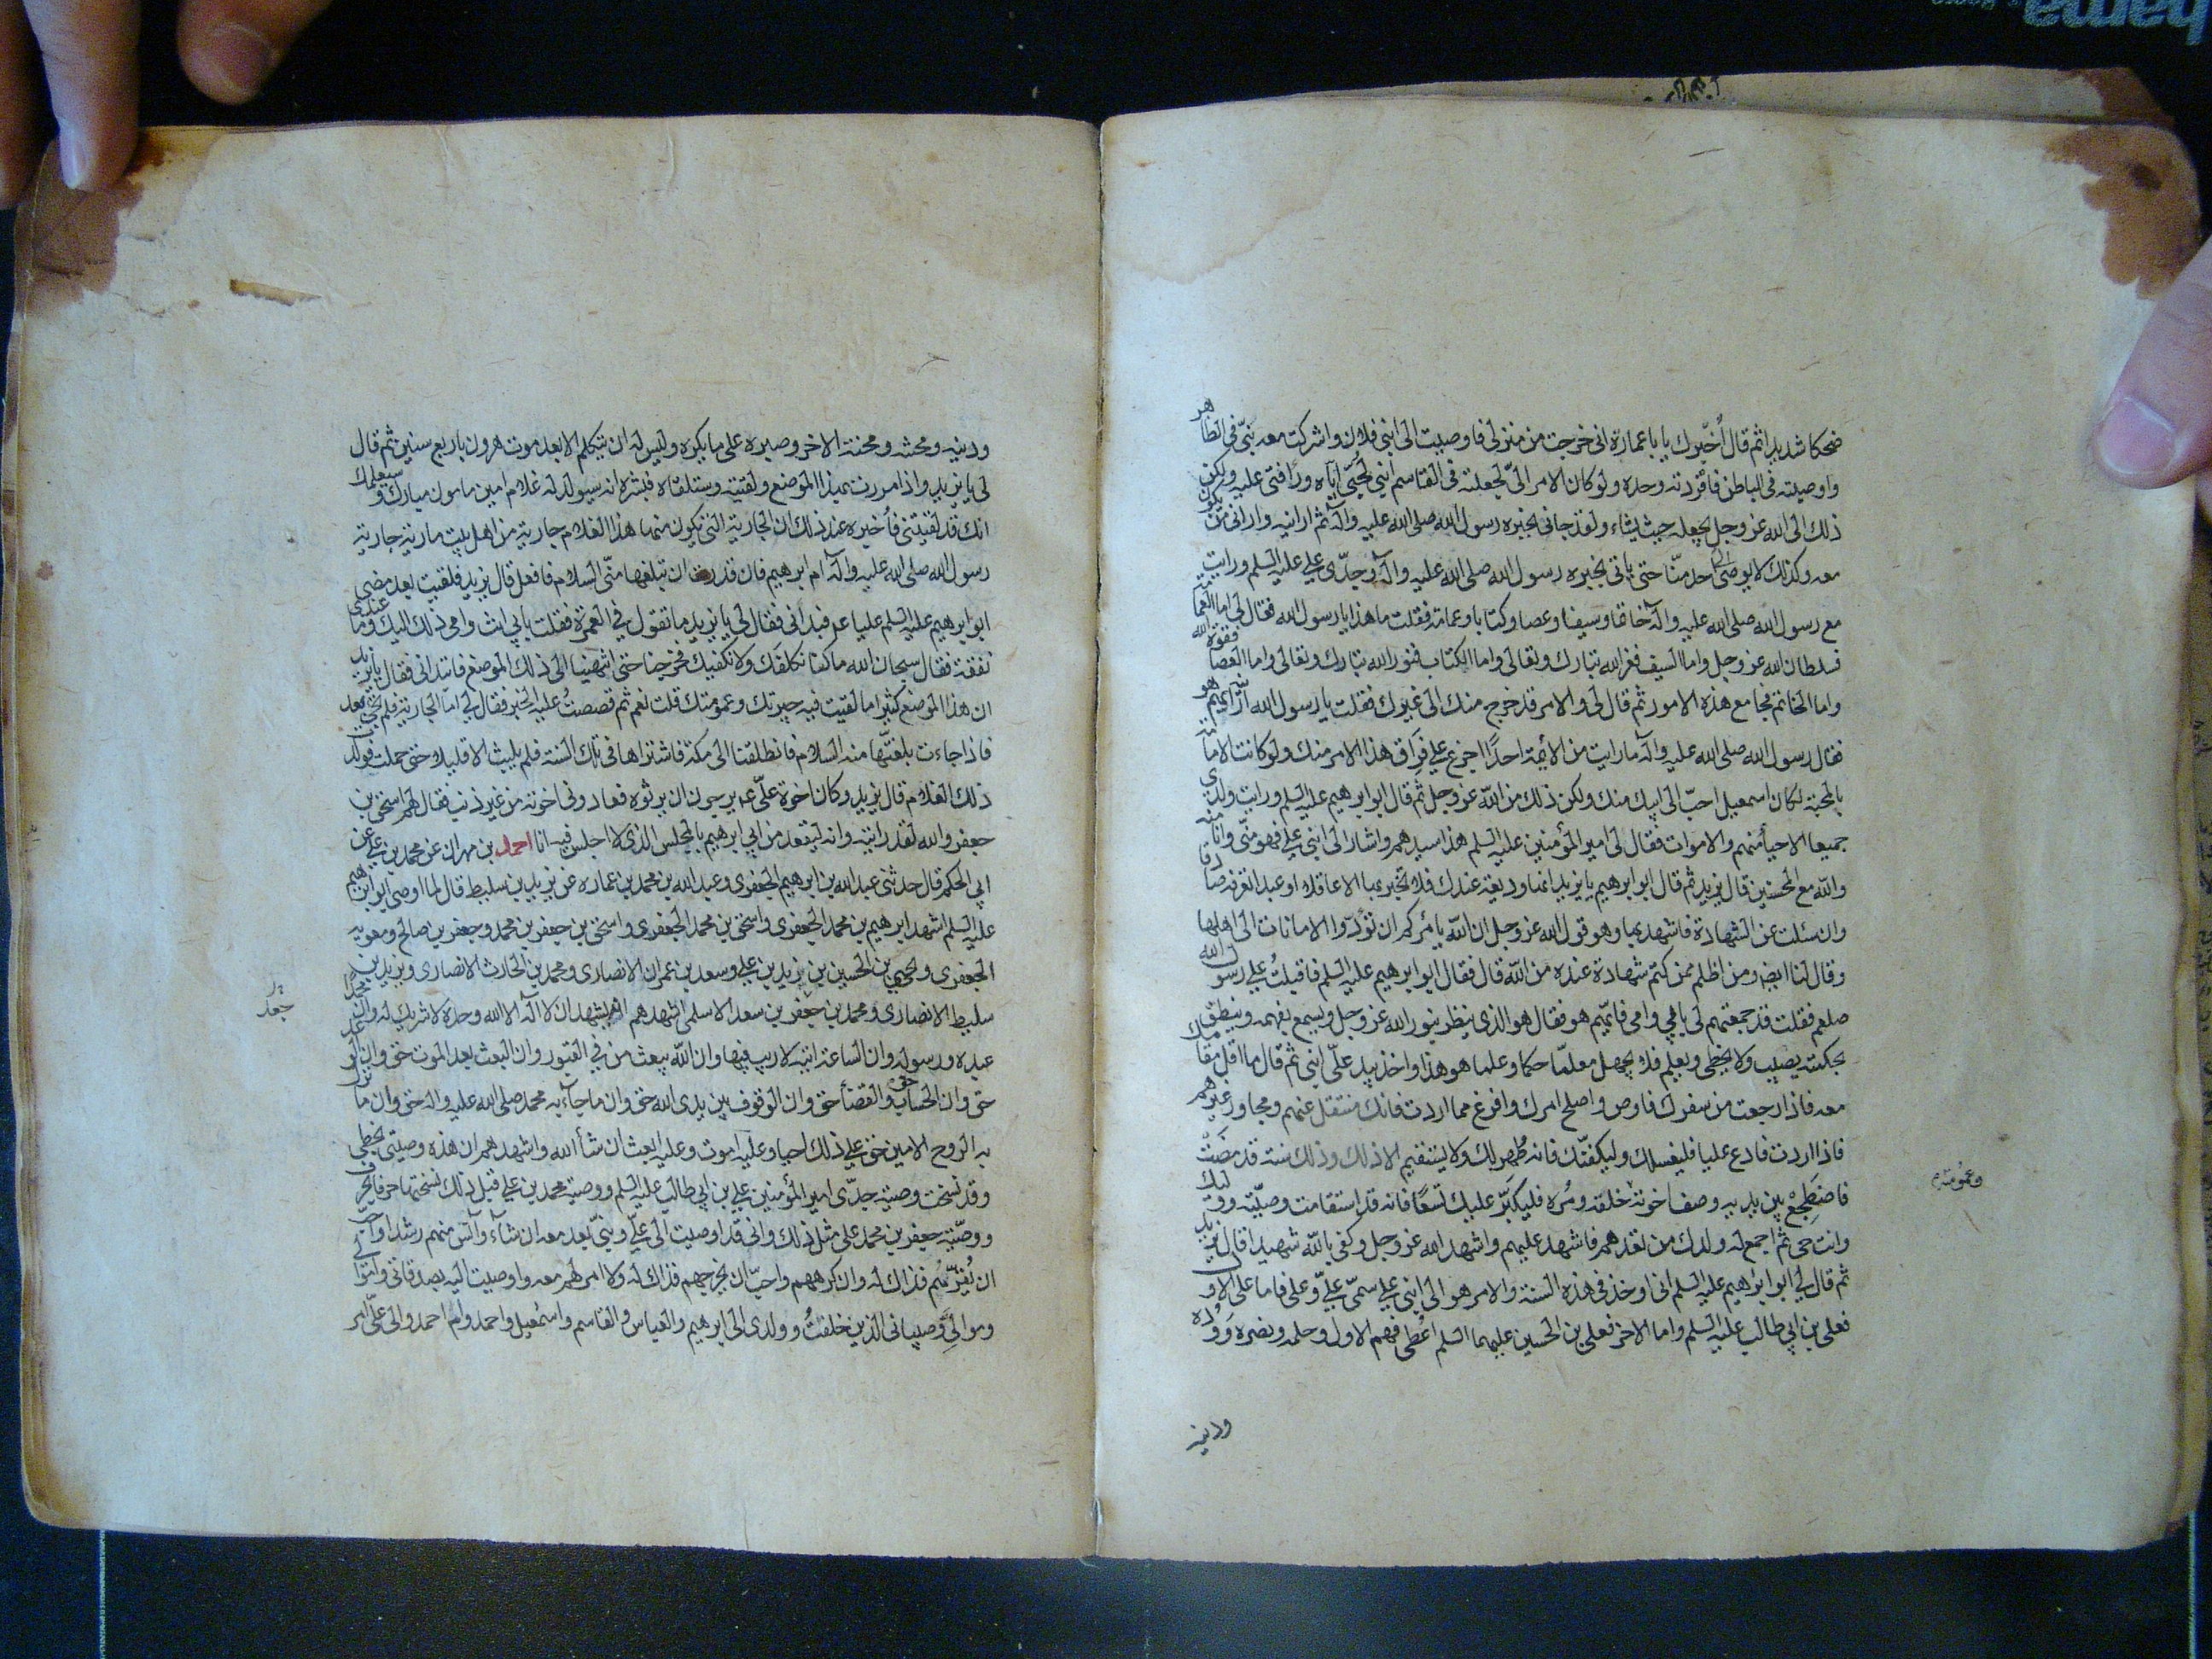 ضحكا شديدا ثم قال أخبرك يا باعمارة انى خرجت من منزلى فاوصيت الى ابنى فلان واشركت معه بنىّ فى الظاهر
واوصيته فى الباطن فافردته وحده ولو كان الامر الىّ لجعلته فى القاسم ابنى لحبّى اياه ورافتى عليه ولكن
ذلك الى الله عز وجل يجعله حيث يشاء ولقد جانى بخبره رسول الله صلى الله عليه وآله ثم ارانيه وارانى من يكون
معه وكذلك لا يوصى الى احد منّا حتى ياتى بخبره رسول الله صلى الله عليه وآله وجدّى على عليه السلم ورايت
مع رسول الله صلى الله عليه وآله خاتما وسيفا وعصا وكتابا وعمامة فقلت ما هذا يا رسول الله فقال لى اما العمامة
فسلطان الله عز وجل واما السيف فعز الله تبارك وتعالى واما الكتاب فنور الله تبارك وتعالى واما العصا فقوة الله
واما الخاتم فجامع هذه الامور ثم قال لى والامر قد خرج منك الى غيرك فقلت يا رسول الله ارنيه ايهم هو
فقال رسول الله صلى الله عليه وآله ما رايت من الائمة احدًا اجزع على فراق هذا الامر منك ولو كانت الامامة
بالمحبة لكان اسمعيل احبّ الى ابيك منك ولكن ذلك من الله عز وجل ثم قال ابو ابرهيم عليه السلم ورايت ولدى
جميعا الاحيأ منهم والاموات فقال لى امير المؤمنين عليه السلم هذا سيدهم واشار الى ابنى على فهو منّى وانا منه
والله مع المحسنين قال يزيد ثم قال ابو ابرهيم يا يزيد انها وديعة عندك فلا تخبر بها الا عاقلا او عبدا تعرفه صادقا
وان سئلت عن الشهادة فاشهد بها وهو قول الله عز وجل ان الله يأمركم ان تؤدّوا الامانات الى اهلها
وقال لنا ايضا ومن اظلم ممن كتم شهادة عنده من الله قال فقال ابو ابرهيم عليه السلم فاقبلتُ على رسول الله
صلعم فقلت قد جمعتهم لى بابى وامى فايّهم هو فقال هو الذى ينظر بنور الله عز وجل ويسمع بفهمه وينطق
بحكمته يصيب ولا يخطى ويعلم فلا يجهل معلمّا حكما وعلما هو هذا واخذ بيد علىّ ابنى ثم قال ما اقل مقامك
معه فاذا رجعت من سفرك فاوص واصلح امرك وافرغ مما اردت فانك منتقل عنهم ومجاور غيرهم
فاذا اردت فادع عليا فليغسلك وليكفنّك فانه طُهر لك ولا يستقيم الا ذلك وذلك سنة قد مضت
فاضطجع بين يديه وصف اخوته خلفه ومُره فليكبّر عليك تسعًا فانه قد استقامت وصيّته ووليك
وعمومته
وانت حى ثم اجمع له ولدك من بعدهم فاشهد عليهم واشهد الله عز وجل وكفى بالله شهيدا قال يزيد
ثم قال لى ابو ابراهيم عليه السلم انى اوخذ فى هذه السنة والامر هو الى ابنى على سمّى علىّ وعلى فاما على الاول
فعلى بن ابى طالب عليه السلم واما الاخر فعلى بن الحسين عليهما السلم اعطى فهم الاول وحلمه ونصره ووده
ودينه
ودينه ومحنته ومحنة الاخر وصبره على ما يكره وليس له ان يتكلم الا بعد موت هرون باربع سنين ثم قال
لى يا يزيد واذا مررت بهذا الموضع ولقيته وستلقاه فبشره انه سيولد له غلام امين مامون مبارك وسيعلمك
انك قد لقيتنى فأخبره عند ذلك ان الجارية التى يكون منها هذا الغلام جارية من اهل بيت مارية جارية
رسول الله صلى الله عليه وآله ام ابرهيم فان قدرت ان تبلغها منّى السلام فافعل قال يزيد فلقيت بعد مضى
ابو ابرهيم عليه السلم عليا عم فبدأنى فقال لى يا يزيد ما تقول فى العمرة فقلت بابى انت وامى ذلك اليك وما عندى
نفقة فقال سبحان الله ما كنا نكلفك ولا نكفيك فخرجنا حتى انتهينا الى ذلك الموضع فابتدانى فقال يا يزيد
ان هذا الموضع كثيرا ما لقيت فيه جيرتك وعمومتك قلت نعم ثم قصصتُ عليه الخبر فقال لى امّا الجارية فلم تجئ بعد
فاذا جاءت بلغتها منه السلام فانطلقنا الى مكة فاشتراها فى تلك السنة فلم يلبث الا قليلا حتى حملت فولدت
ذلك الغلام قال يزيد وكان اخوة علىّ عم يرجون ان يرثوه فعادونى اخوته من غير ذنب فقال لهم اسحق بن
جعفر والله لقد رايته وانه ليقعد من ابى ابرهيم بالمجلس الذى لا اجلس فيه انا احمد بن مهران عن محمد بن على عن
ابى الحكم قال حدثنى عبد الله بن ابرهيم الجعفرى وعبد الله بن محمد بن عمارة عن يزيد بن سليط قال لما اوصى ابو ابرهيم
عليه السلم اشهد ابرهيم بن محمد الجعفرى واسحق بن محمد الجعفرى واسحق بن جعفر بن محمد وجعفر بن صالح ومعوية
الجعفرى ويحيى بن الحسين بن يزيد بن على وسعد بن عمران الانصارى ومحمد بن الحارث الانصارى ويزيد بن
سليط الانصارى ومحمد بن جعفر بن سعد الاسلمى اشهدهم انه يشهد ان لا اله الا الله وحده لا شريك له وان محمدا
جعد
عبده ورسوله وان الساعة اتية لا ريب فيها وان الله يبعث من فى القبور وان البعث بعد الموت حق وان الوعد
حق وان الحساب حق والقضأ حق وان الوقوف بين يدى الله حق وان ما جآء به محمد صلى الله عليه واله حق وان ما نزل
به الروح الامين حق على ذلك احيا وعليه اموت وعليه ابعث ان شأ الله واشهدهم ان هذه وصيتى بخطى
وقد نسخت وصية جدّى امير المؤمنين على بن ابى طالب عليه السلم ووصية محمد بن على قبل ذلك نسختها حرفا بحرف
ووصّية جعفر بن محمد على مثل ذلك وانى قد اوصيت الى علىّ وبنىّ بعد معه ان شآء وآنس منهم رشدا واحب
ان يُقرّهم فذاك له وان كرههم واحبّ ان يخرجهم فذاك له ولا امر لهم معه واوصيت اليه بصدقاتى واموالى
وموالىّ وصبيانى الذين خلفتُ وولدى الى ابرهيم والعباس والقاسم واسمعيل واحمد وام احمد والى علىّ امر